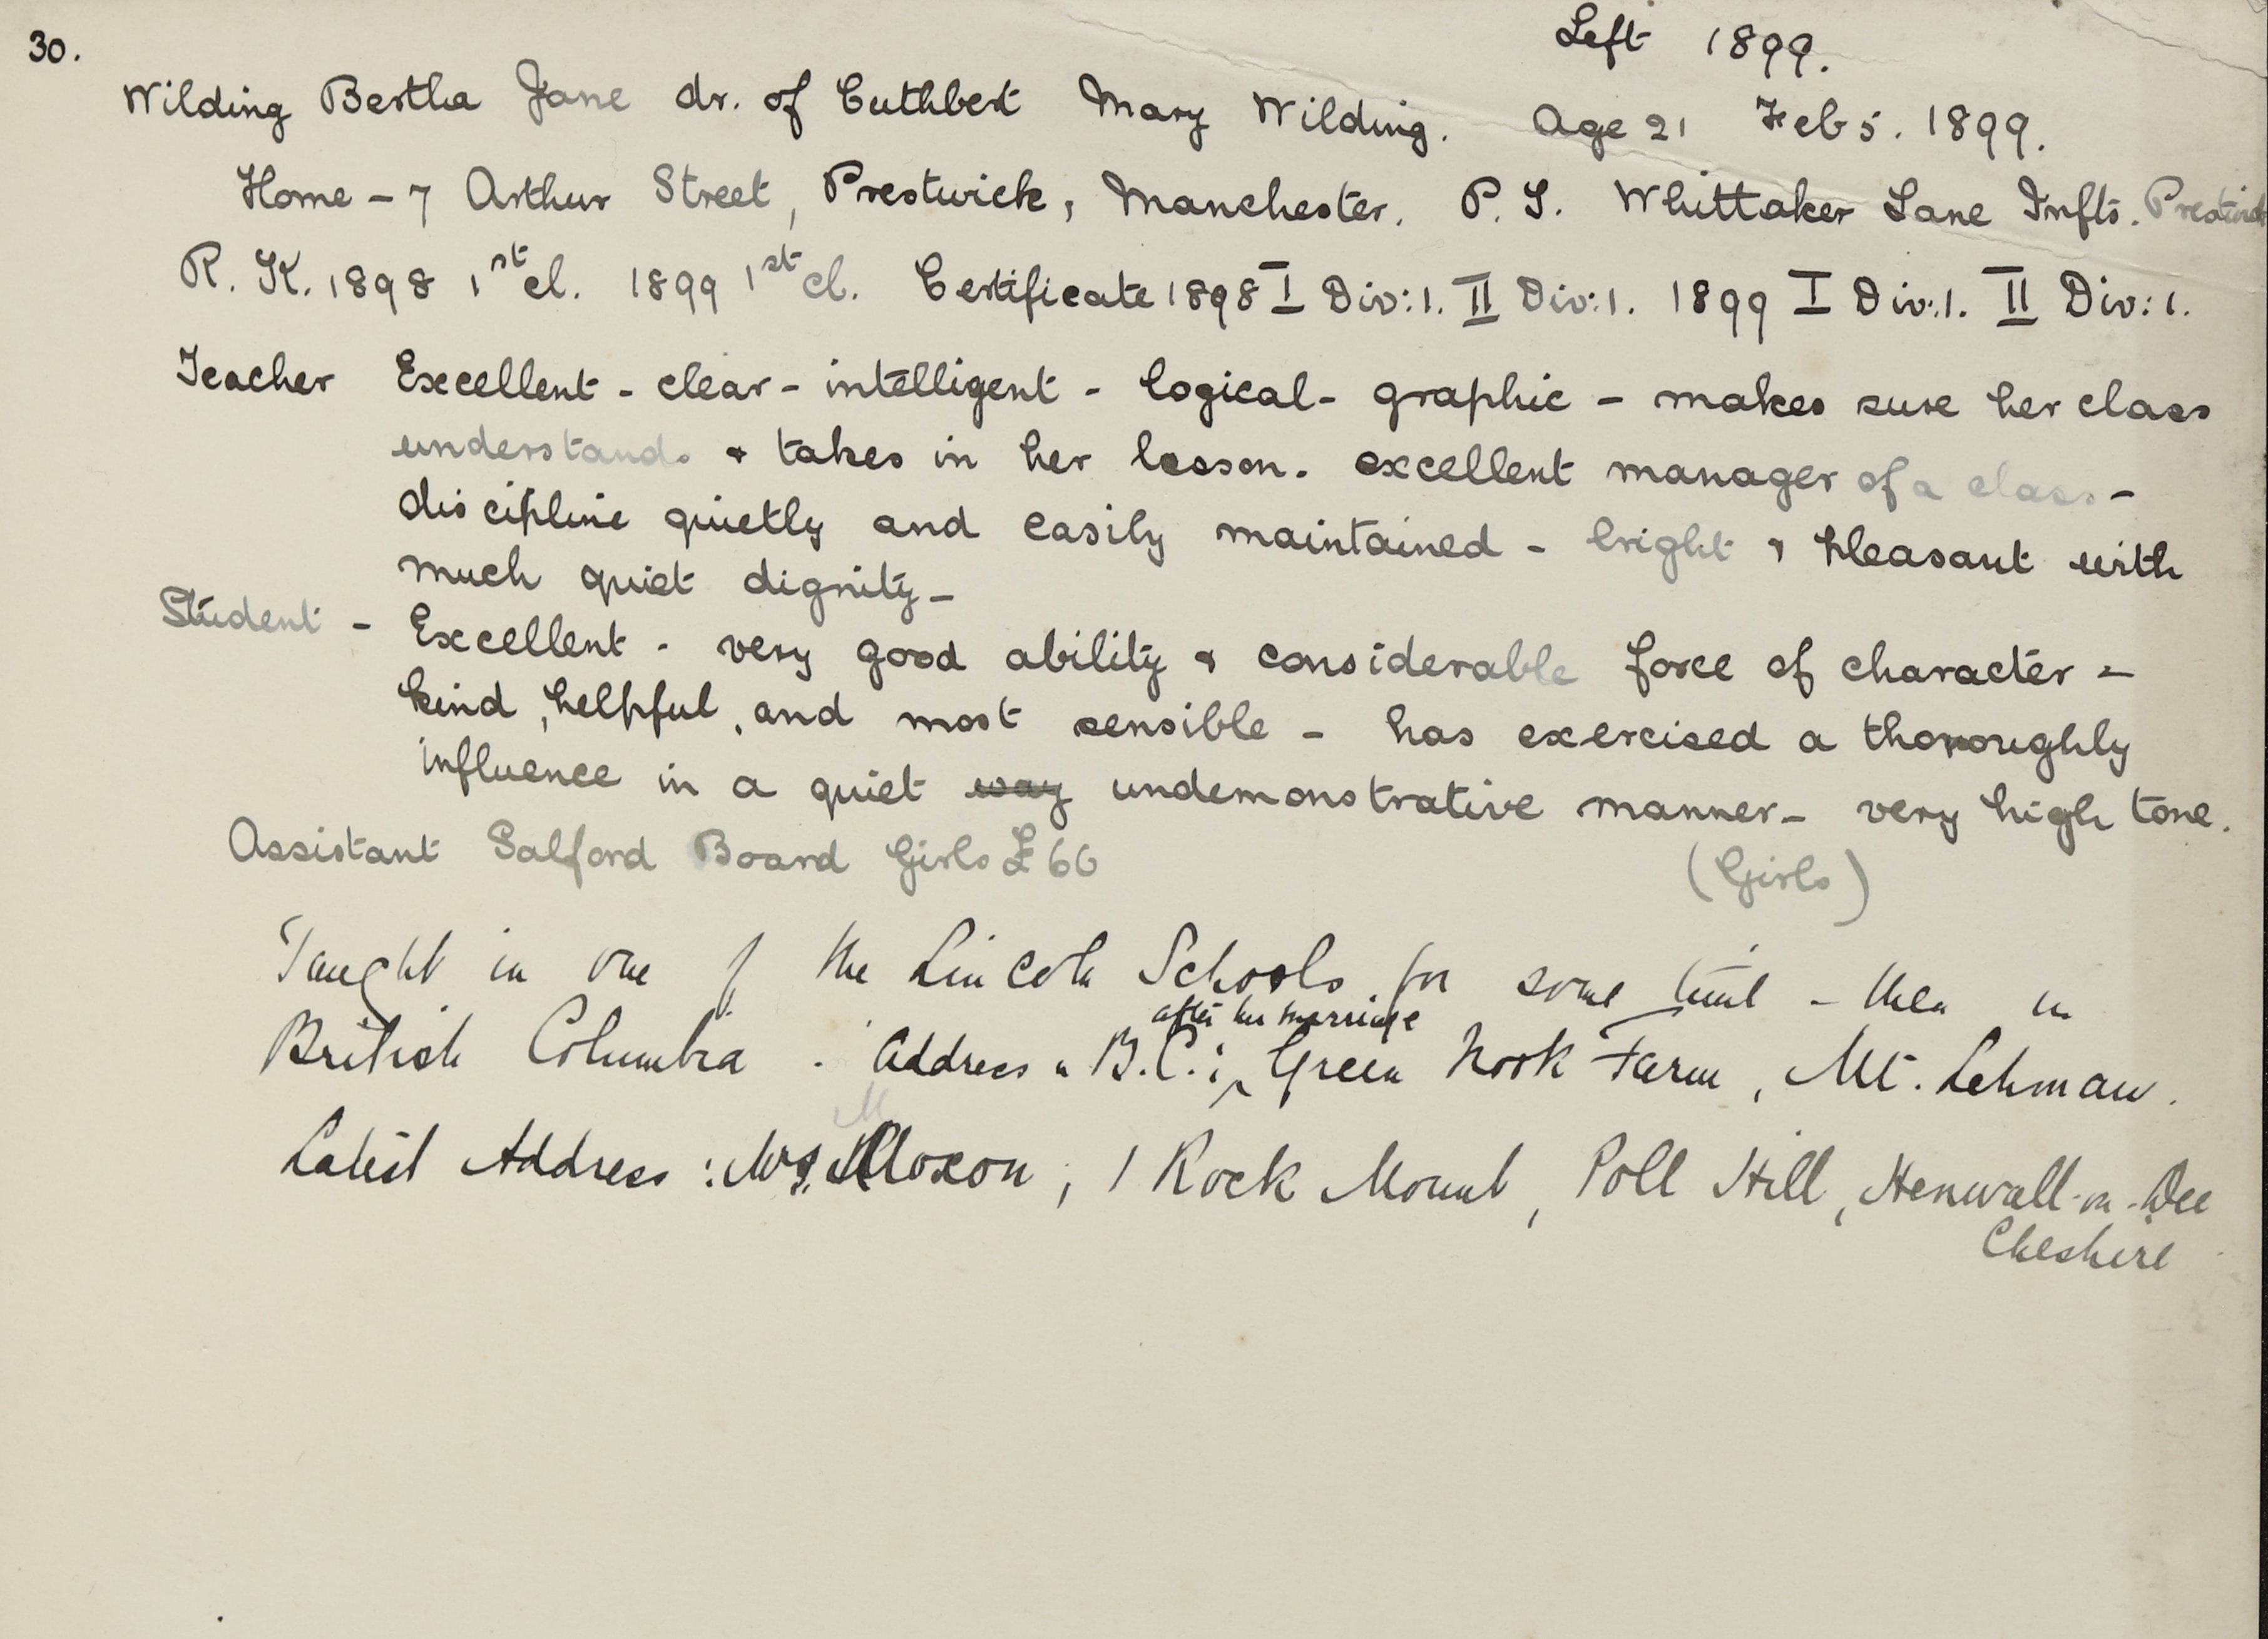 30.
Left 1899.
Wilding Bertha Jane dr. of Cuthbert Mary Wilding. Age 21 Feb 5. 1899.
Home - 7 Arthur Street, Prestwick, Manchester. P. S. Whittaker Lane Infts. Prestwick
R. K. 1898 1st cl. 1899 1st cl. Certificate 1898 I Div: 1. II Div: 1. 1899 I Div: 1. II Div: 1.
Teacher Excellent - clear - intelligent - logical - graphic - makes sure her class
understands & takes in her lesson. excellent manager of a class -
discipline quietly and easily maintained - bright & pleasant with
much quiet dignity -
Student - Excellent - very good ability & considerable force of character -
kind, helpful, and most sensible - has exercised a thoroughly
influence in a quiet way undemonstrative manner - very high tone.
Assistant Salford Board Girls £60 (Girls)
Taught in one of the Lincoln Schools for some time - then in
after her marriage
British Columbia. Address in B.C.: Green Nook Farm, Mt. Lehman.
Latest Address: Mrs. Moxon, 1 Rock Mount, Poll Hill, Heswall-on-Dee
Cheshire